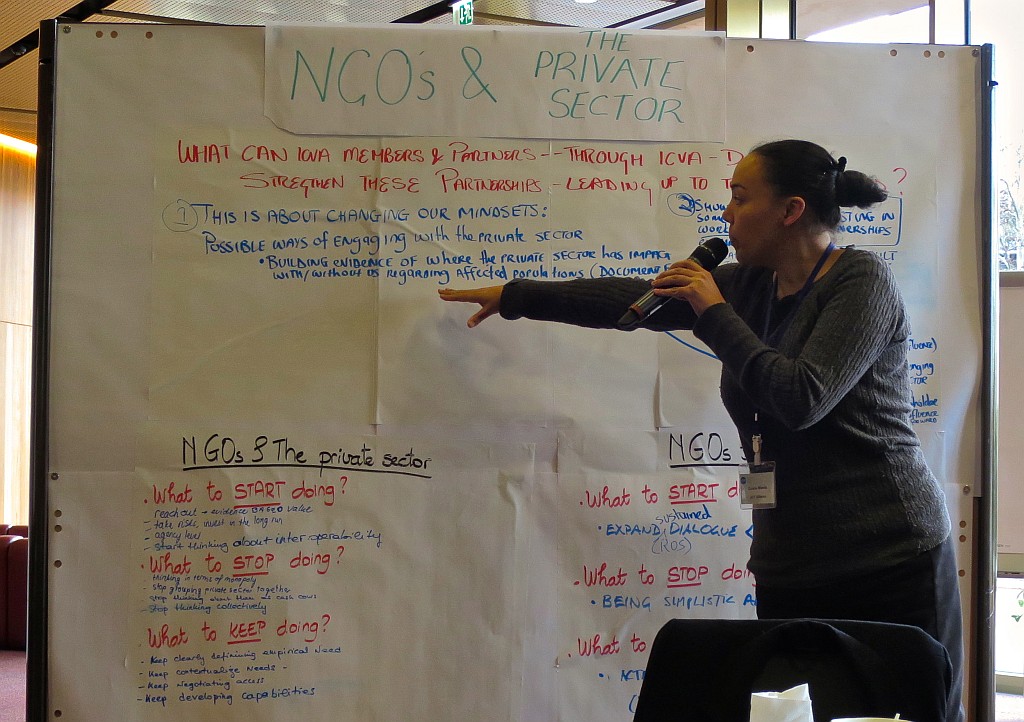 NGO's &
THE
PRIVATE
SECTOR
WHAT CAN ICVA MEMBERS & PARTNERS -- THROUGH ICVA - D
STREGTHEN THESE PARTNERSHIPS - LEADING UP TO T ?
① THIS IS ABOUT CHANGING OUR MINDSETS:
POSSIBLE WAYS OF ENGAGING WITH THE PRIVATE SECTOR
• BUILDING EVIDENCE OF WHERE THE PRIVATE SECTOR HAS IMPACT
WITH/WITHOUT US REGARDING AFFECTED POPULATIONS (DOCUMENT
②
NGOs & The private sector
. What to START doing?
- take risks, invest in the long run
- agency level
- start thinking about interoperability
. What to STOP doing?
thinking in terms of monopoly
- stop grouping private sector together
- Stop thinking collectively
What to KEEP doing?
- Keep clearly defining empirical need
- Keep contextualize needs -
- Keep negotiating access
- Keep developing capabilities
NGOs
. What to START d
sustained
• EXPAND DIALOGUE
(ROS)
. What to STOP doin
• BEING SIMPLISTIC A
. What to